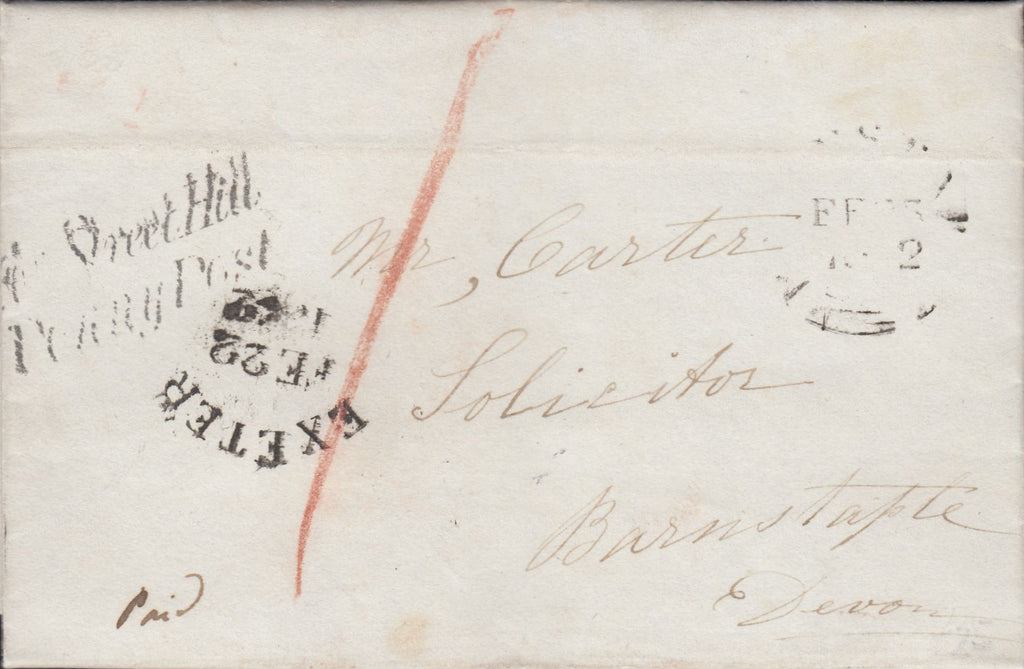 Street Hill
Penny Post
EXETER
FE 22
Mr, Carter
Solicitor
Barnstaple
Devon
Paid